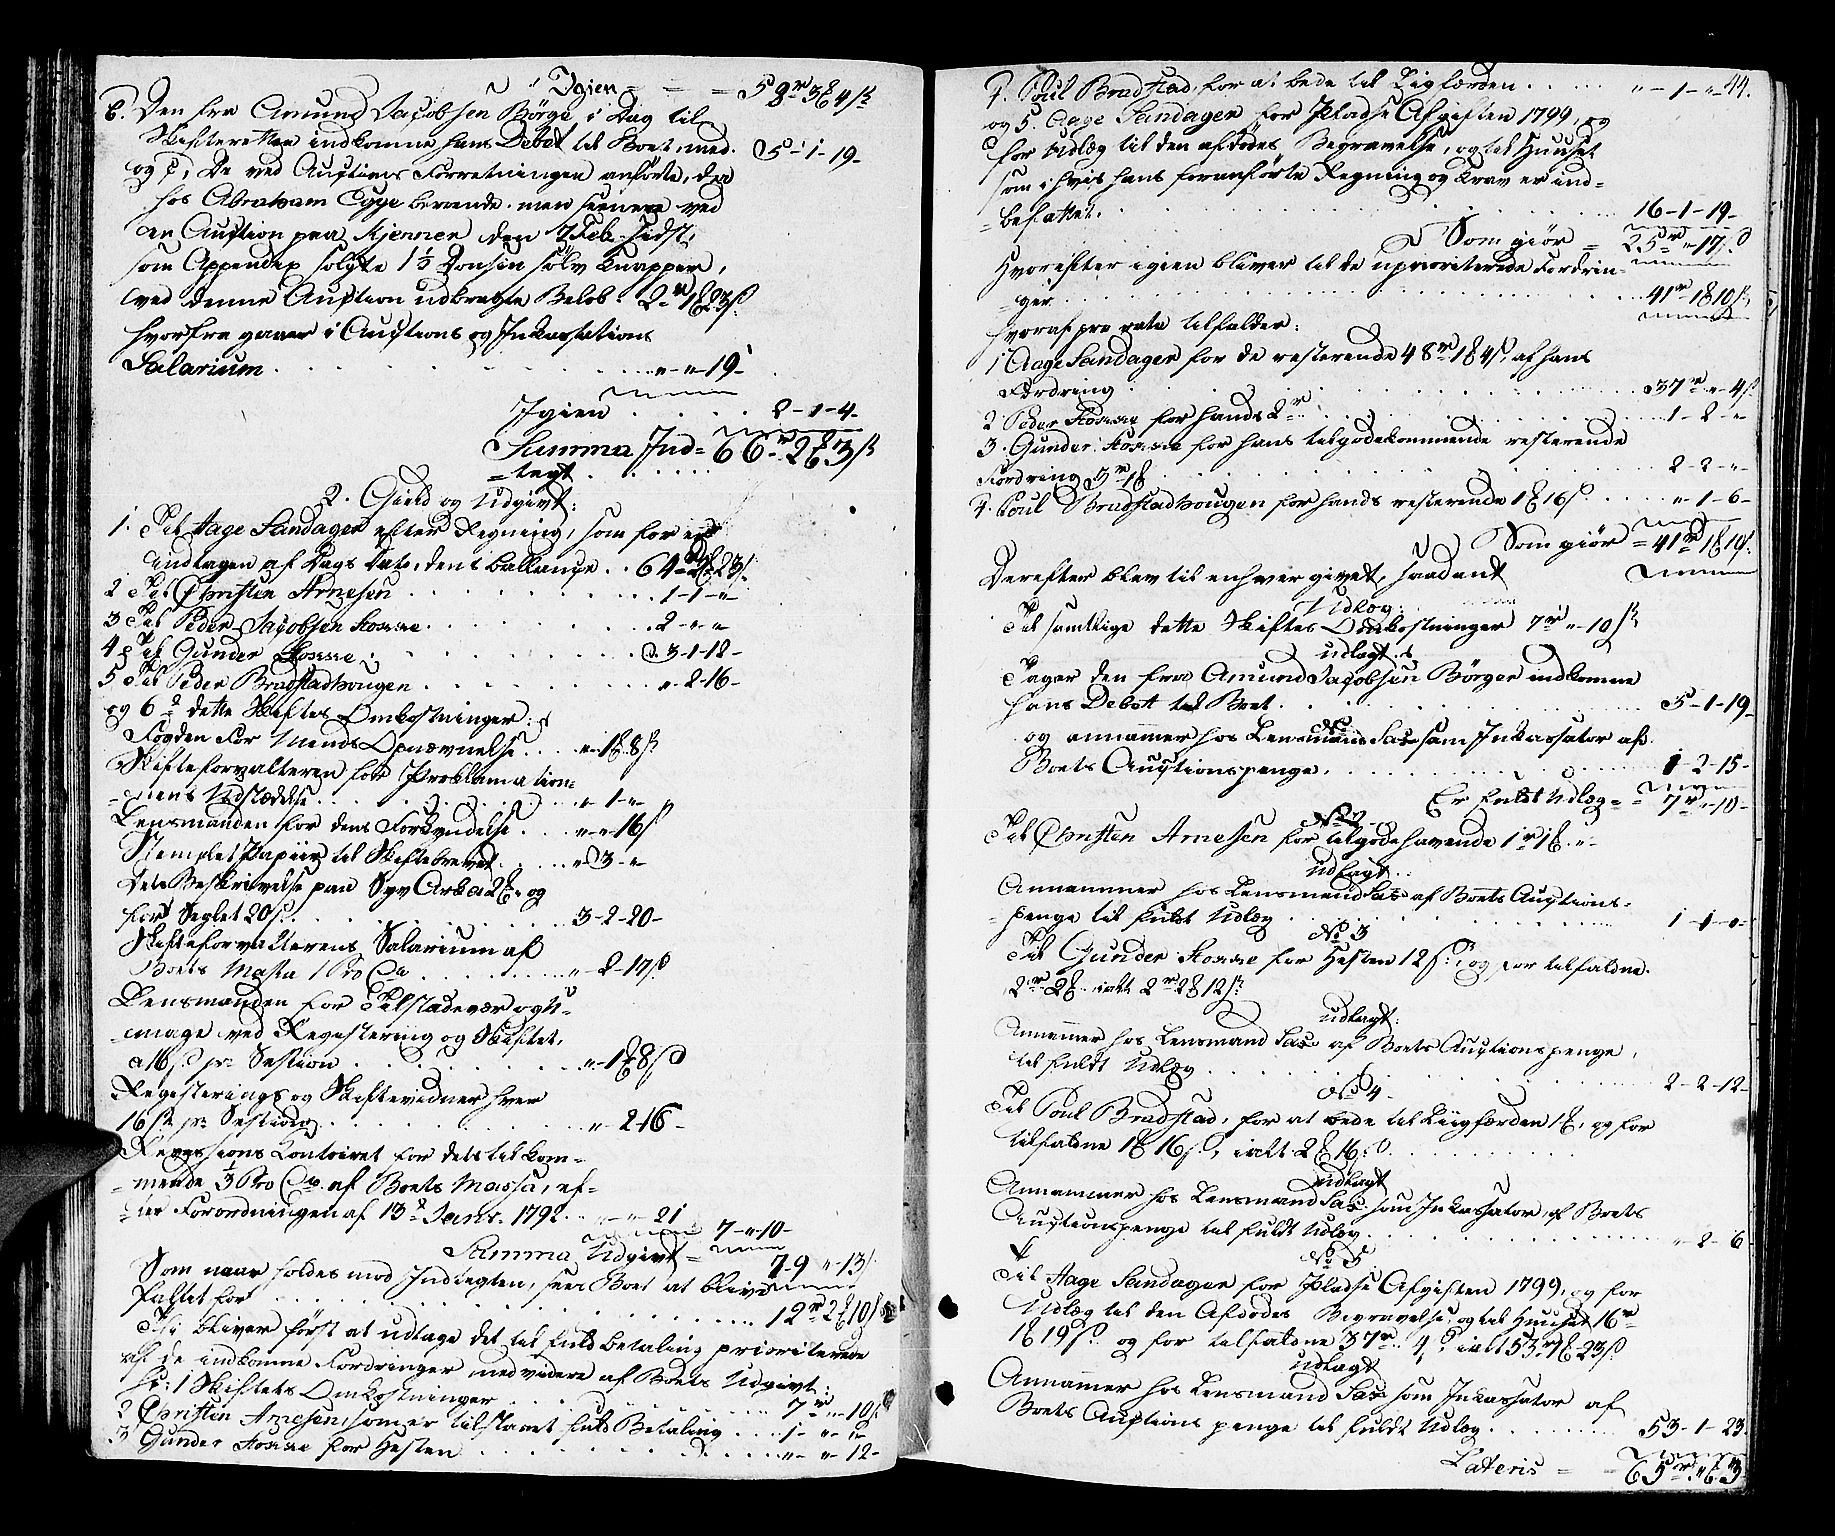 Igien - - - 58 rd 3 ₰ 4 ß
6. Den fra Amund Jacobsen Börge, i Dag til
Skifteretten indkomne hans Debet til Boet, med. 5-1-19-
og 7, De ved Auctions Forretningen anförte, der
hos Abraham Egge beroende, men sienere ved
en Auction paa Kjenner den 7 Feb. sidst,
som Appendix solgte 1 1/2 Donsin sölv Knapper,
ved denne Auction udbragte Belöb. 2 rd 1 ₰ 23 ß.
hvorfra gaaer i Auctions og Inkassations
Salarium . . . . "-"-19-
Igien . . . . 2-1-4-
Summa Ind= 66 rd 2 ₰ 3 ß
=tegt . . . .
2. Gield og Udgivt:
1. Til Aage Sandager efter Regning, som for er
indtagen af Dags Dato, dens Ballange . . 64-2-23 ß.
2 Til Christen Arnesen . . . . 1-1-"
3 Til Peder Jacobsen Fosse . . . . 2-"-"
4 Til Gunder Fosse . . . . 3-1-18-
5 Til Peder Bradstadhougen . . . . "-2-16-
og 6 dette Skiftes Omkostninger:
Fogden for Mends Opnævnelse . . . "-1 ₰ 8 ß
Skifteforvalteren for Proklamatio=
=nens Udstædelse . . . . "-1-"
Lensmanden for dens Forkyndelse . . "-"-16 ß
Stemplet Papiir til Skiftebrevet . . . "-3-"
Dets Beskrivelse paa Syv Ark a 2 ₰ og
for Seglet 20 ß . . . . 3-2-20-
Skifteforvalterens Salarium af
Boets Massa 1 Pro Cto . . . . "-2-17 ß
Lensmanden for Tilstædevær og U=
=mage ved Registering og Skiftet,
a 16 ß pr. Session . . . . "-1 ₰ 8 ß
Registerings og Skiftevidner hver
16 ß pr. Session . . . . "-2-16-
Revisions Kontoiret for dets tilkom=
=mende 1/3 Pro Cto af Boets Massa, ef=
=ter Forordningen af 13de Janr. 1792. . . "-"-21
7-"-10-
Summa Udgivt = 79-"-13 ß
Som naar holdes mod Indtegten, sees Boet at blive
fallit for . . . . 12 rd 2 ₰ 10 ß
Thi bliver först at udlage det til fuld betaling prioriterede
af de indkomne Fordringer med videre af Boets Udgivt:
Nr: 1 Skiftets Omkostninger . . . . 7 rd-"-10 ß
2 Christen Arnesen, som er tilstaaet fuld Betaling . . . 1-"-"
3 Gunder Fosse for Hesten . . . . "-"-12-
44.
4. Poul Bradstad, for at bede til Ligfærden . . . . "-1-"-
og 5. Aage Sandager for Pladse Afgiften 1799, og
for Udlæg til den afdödes Begravelse, og til Huuset
som i hvis hans foranförte Regning og Krav er ind=
=befattet. . . . . 16-1-19-
Som giör = 25 rd-"-17 ß
Hvorefter igien bliver til de uprioriterede Fordrin=
=ger . . . . 41 rd 1 ₰ 10 ß
hvoraf pro rata tilfalder:
1 Aage Sandager for de resterende 48 rd 1 ₰ 4 ß, af hans
Fordring . . . . 37 rd-"-4 ß
2 Peder Fosse for hands 2 rd . . . . 1-2-"-
3. Gunder Fosse for hans tilgodekommende resterende
Fordring 3 rd 1 ₰ . . . . 2-2-"-
4. Poul Bradstadhougen for hands resterende 1 ₰ 16 ß . . . "-1-6-
Som giör = 41 rd 1 ₰ 10 ß.
Derefter blev til enhver givet saadant
Udlæg:
Til samtlige dette Skiftes Omkostninger 7 rd-"-10 ß
udlagt:
Tager den fra Amund Jacobsen Börger indkomne
hans Debet til Boet . . . . 5-1-19-
og annammer hos Lensmand Sas som Inkassator af
Boets Auctionspenge . . . . 1-2-15-
Er fuldt Udlæg = 7 rd-"-10-
No 2
Til Christen Arnesen for tilgodehavende 1 rd 1 ₰ "-
udlagt.
Annammer hos Lensmand Sas af Boets Auctions=
=penge til fuldt Udlæg . . . . 1-1-"-
No 3
Til Gunder Fosse for Hesten 12 ß, og for tilfaldne
2 rd 2 ₰ ialt 2 rd 2 ₰ 12 ß.
udlagt:
Annammer hos Lensmand Sas af Boets Auctionspenge,
til fuldt Udlæg . . . . 2-2-12-
No 4-
Til Poul Bradstad, for at bede til Liigfærden 1 ₰, og for
tilfaldne 1 ₰ 16 ß, ialt 2 ₰ 16 ß . . . .
udlagt
Annammer hos Lensmand Sas, som Inkassator, af Boets
Auctionspenge til fuldt Udlæg . . . . "-2-6
No 5
Til Aage Sandager for Pladse Afgiften 1799, og for
Udlæg til den Afdödes Begravelse, og til Huuset 16 rd
1 ₰ 19 ß. og for tilfaldne 37 rd "- 4 ß ialt 53 rd 1 ₰ 23 ß.
udlagt
Annammer hos Lensmand Sas som Inkassator af
Boets Auctions penge til fuldt Udlæg . . . . 53-1-23.
Lateris = 65 rd "₰ 3